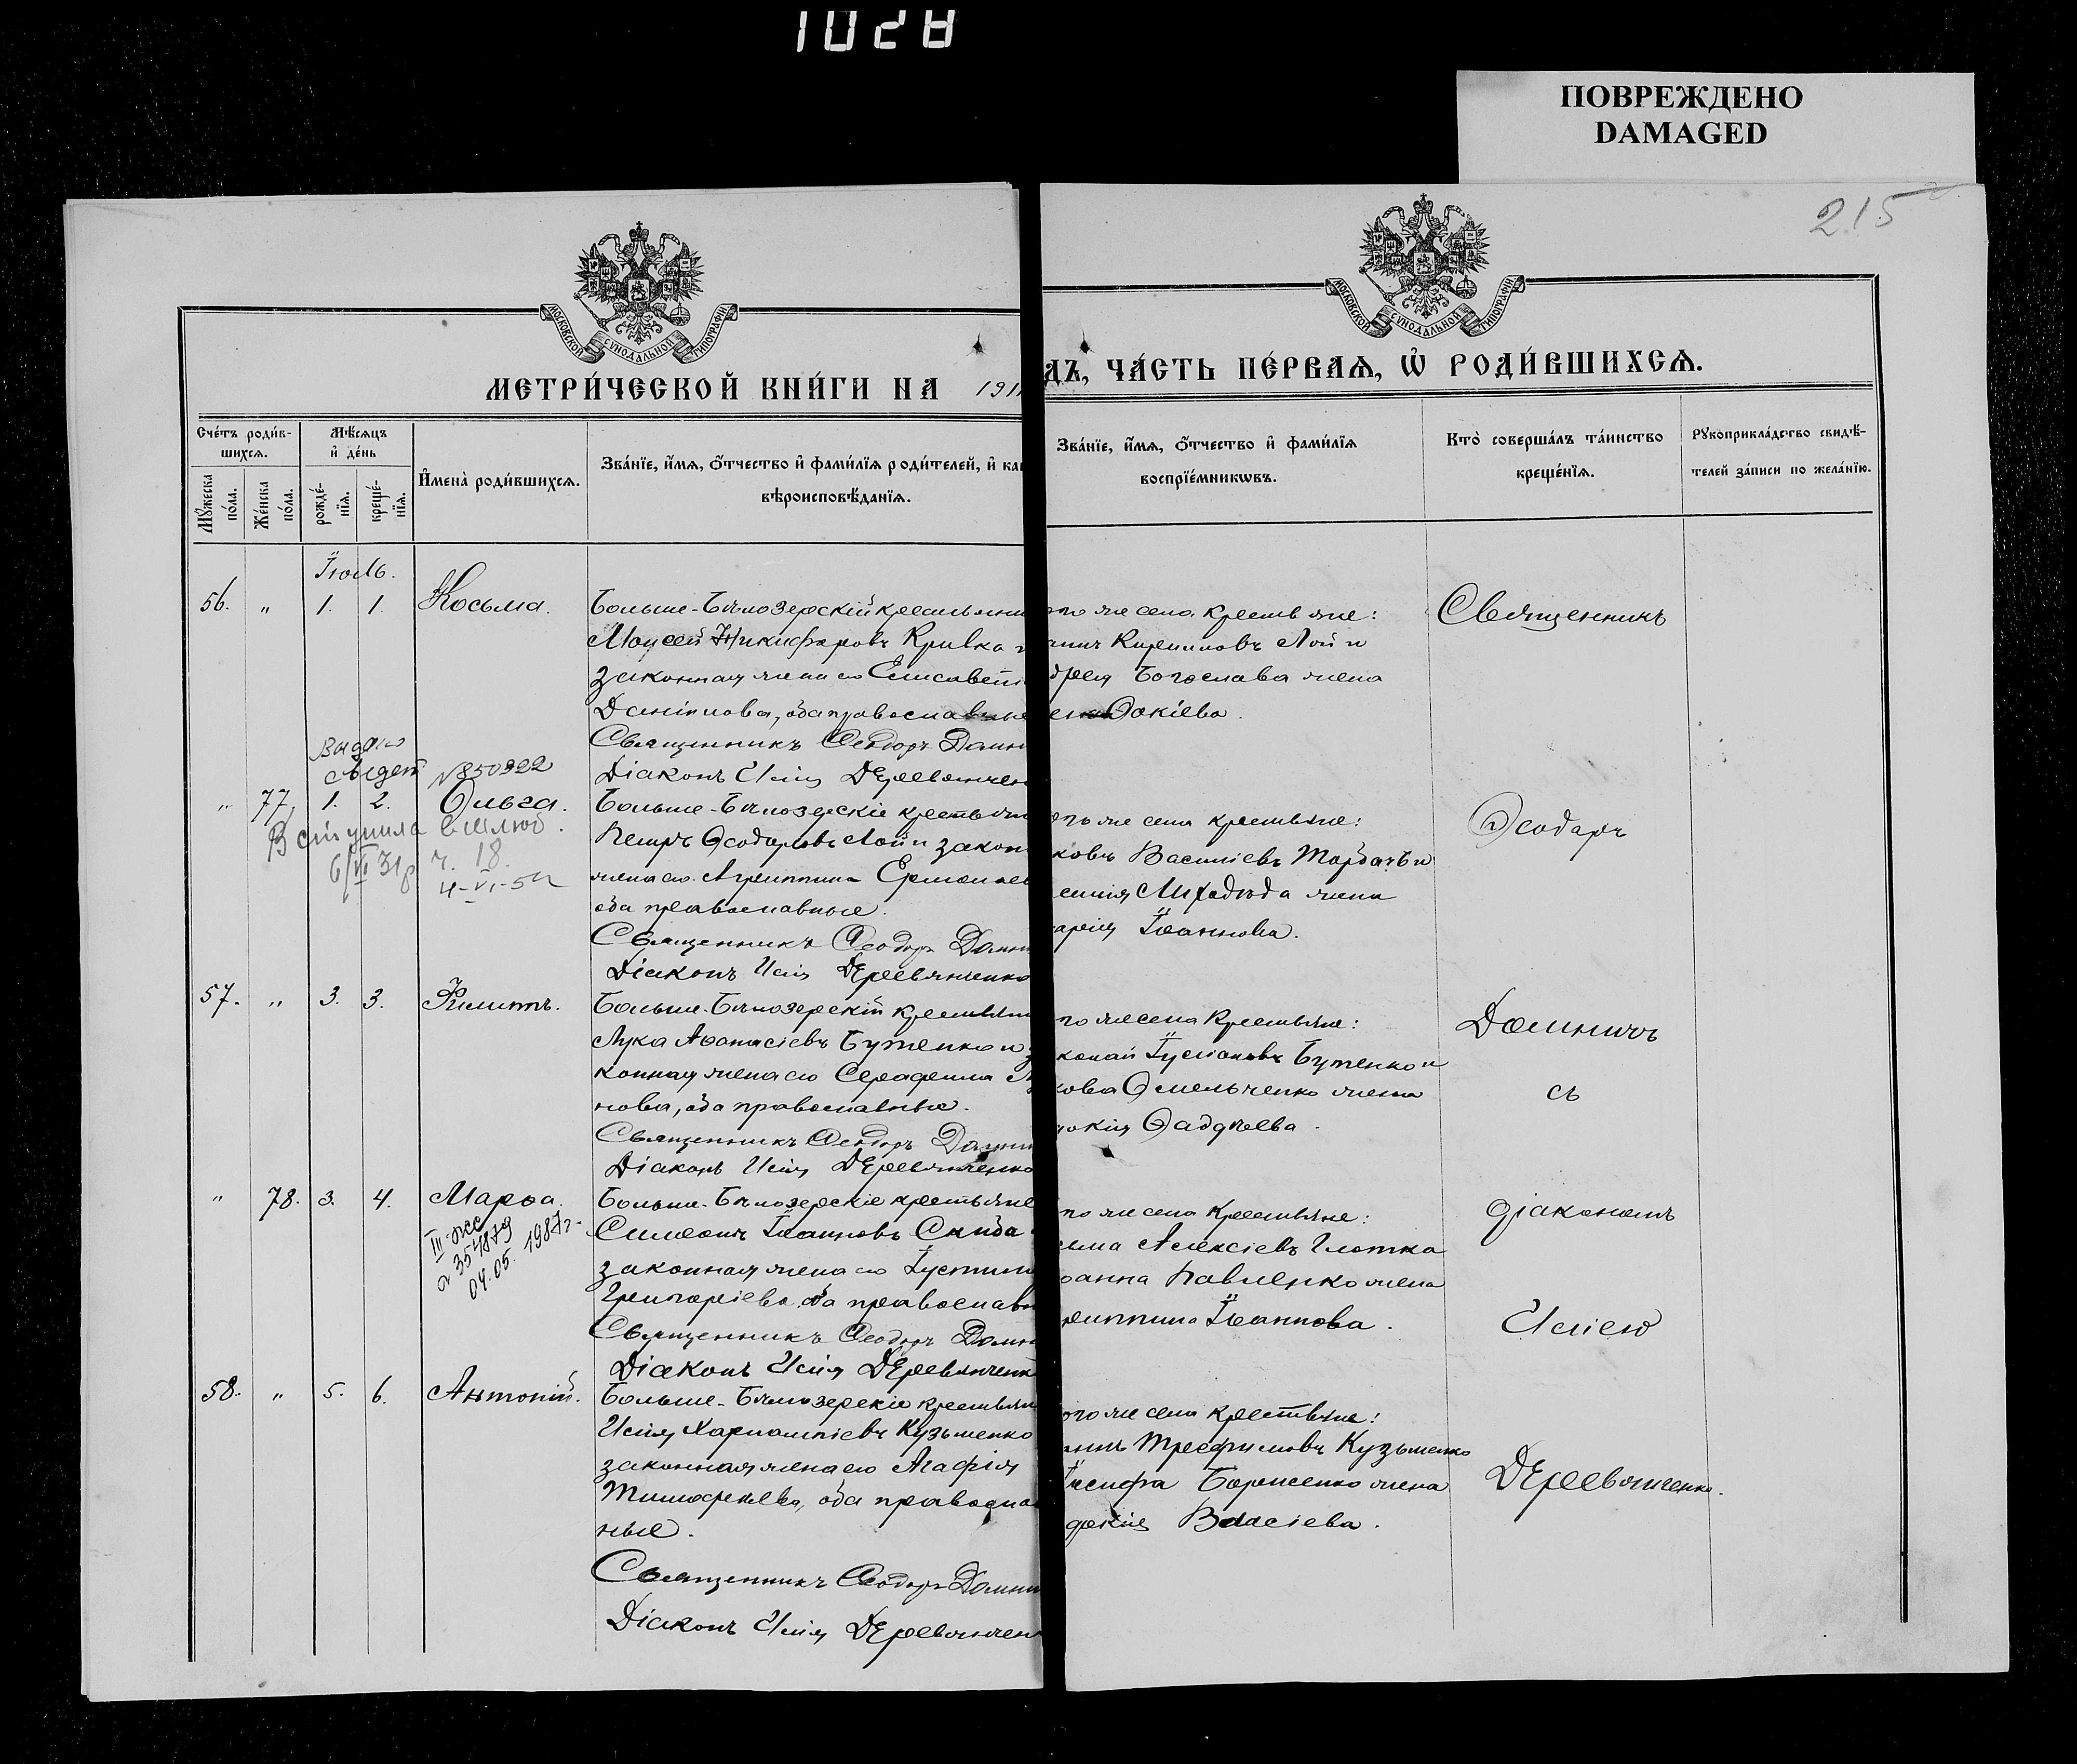 1028
ПОВРЕЖДЕНО
DAMAGED
215
МОСКОВСКОЙ СѴНОДАЛЬНОЙ ТИПОГРАФІИ
МОСКОВСКОЙ СѴНОДАЛЬНОЙ ТИПОГРАФІИ
МЕТРИ́ЧЕСКОЙ КНИ́ГИ НА 191
ДЪ, ЧА́СТЬ ПЕ́РВАѦ, Ѡ҆ РОДИ́ВШИХСѦ.
Сче́тъ роди́в-
шихсѧ.
Мꙋ́жеска по́ла.
Же́нска по́ла.
Мѣ́сѧцъ
и҆ де́нь
рожде́-
нїѧ.
креще́-
нїѧ.
И҆мена̀ роди́вшихсѧ.
Зва́нїе, и҆́мѧ, ѻ҆́тчество и҆ фами́лїѧ роди́телей, и҆ ка
вѣроисповѣ́данїѧ.
Зва́нїе, и҆́мѧ, ѻ҆́тчество и҆ фами́лїѧ
воспрїе́мникѡвъ.
Кто̀ соверша́лъ та́инство
креще́нїѧ.
Рꙋкоприкла́дство свидѣ́-
телей за́писи по жела́нїю.
Іюль.
56. " 1. 1. Косьма.
Больше-Бѣлозерскій крестьянин
Моѵсей Никифоровъ Кривка и
законная жена его Елисавета
Даніилова, оба православные
Священникъ Ѳеодоръ Домн
Діаконъ Илія Деревянчен
ого же села крестьяне:
Кириловъ Лой и
Богослава жена
Ѳокіева.
Священникъ
Выдано
свидет №850922
" 77. 1. 2. Ольга.
Вступила в шлюб.
6/VI 31 г. ч. 18.
4-VI-51
Больше-Бѣлозерскіе крестьян
Петръ Ѳеодоровъ Лой и закон
жена его Агриппина Ермолаев
оба православные.
Священникъ Ѳеодоръ Домн
Діаконъ Илія Деревянченко
ого же села крестьяне:
ковъ Василіевъ и
жена
арія Іоаннова.
Ѳеодоръ
57. " 3. 3. Филиппъ.
Больше-Бѣлозерскій крестьянин
Лука Аѳанасіевъ Бутенко и за
конная жена его Серафима
нова, оба православные.
Священникъ Ѳеодоръ Домн
Діаконъ Илія Деревянченко
го же села крестьяне:
Бутенко и
кова Омельченко жена
докія Ѳаддѣева.
Домничъ
съ
" 78. 3. 4. Марѳа.
III-ЖС
№ 354879
04.05. 1987г.
Больше-Бѣлозерскіе крестьяне
Симеонъ Іоанновъ Скиба
законная жена его Іустина
Григоріева, оба православн
Священникъ Ѳеодоръ Домн
Діаконъ Илія Деревянченк
го же села крестьяне:
сьма Алексіевъ Глотка
оанна Павленко жена
риппина Іоаннова.
діакономъ
Иліею
58. " 5. 6. Антоній.
Больше-Бѣлозерскіе крестьян
Илія Харлампіевъ Кузьменко
законная жена его Агафія
Тимофеева, оба православ
ные.
Священникъ Ѳеодоръ Домн
Діаконъ Илія Деревянчен
ого же села крестьяне:
аннъ Трефиловъ Кузьменко
Іосифа Борисенко жена
докія Власіева.
Деревянченко.